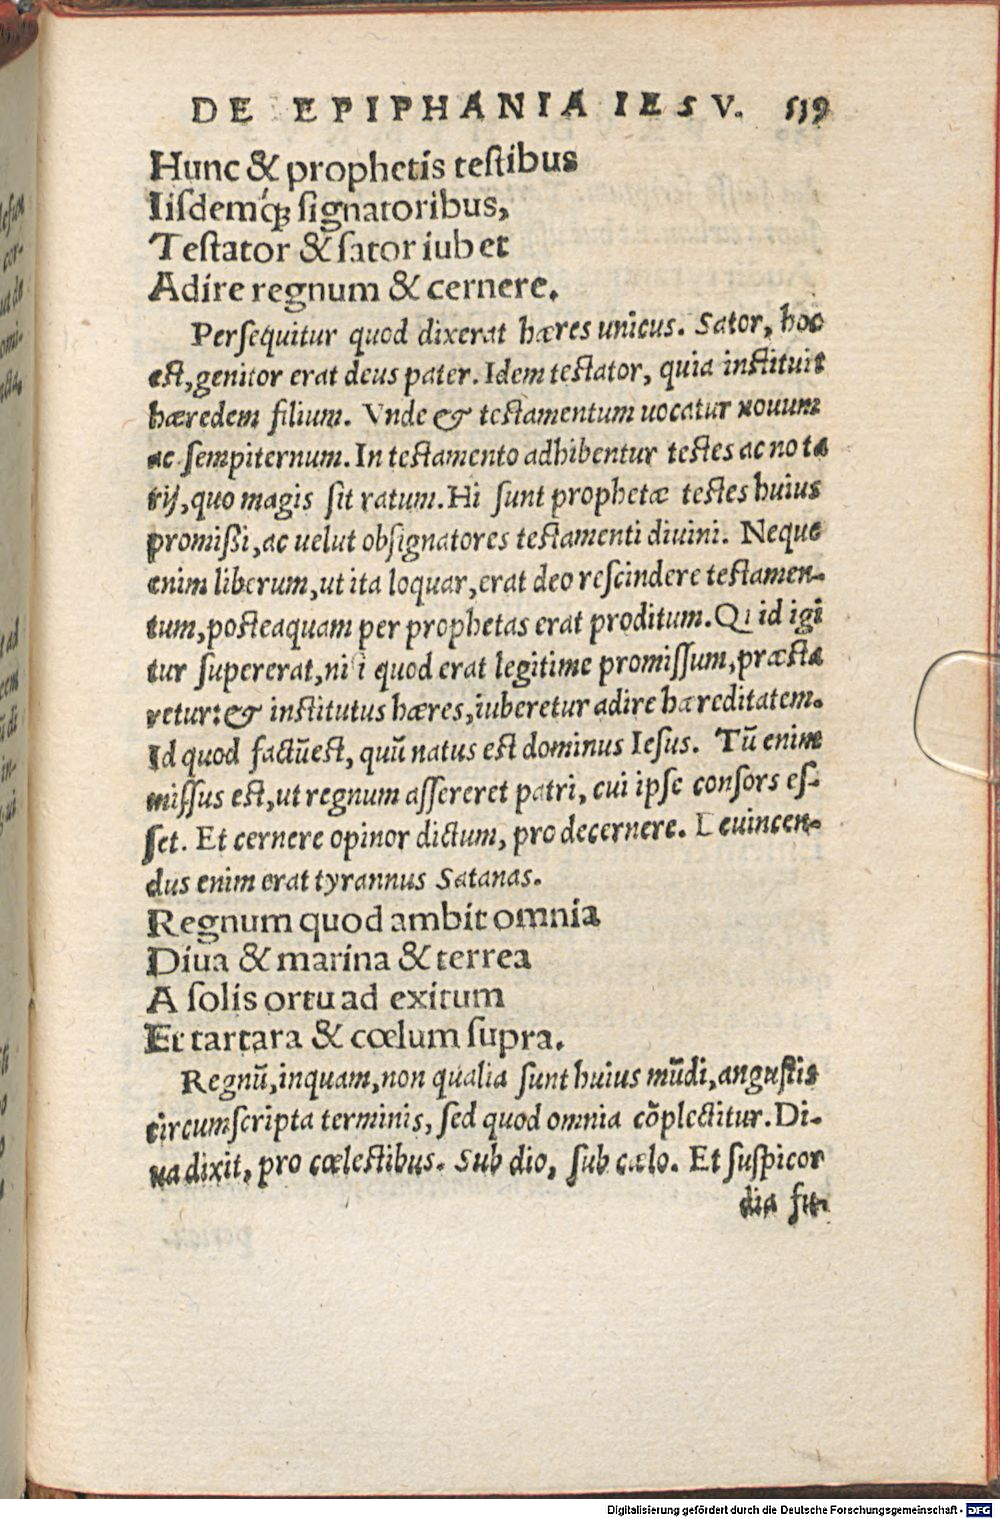 DE EPIPHANIA IESV. 539
Hunc & prophetis testibus
Iisdemq́ꝫ signatoribus,
Testator & sator iubet
Adire regnum & cernere.
Persequitur quod dixerat hæres unicus. Sator, hoc
est, genitor erat deus pater. Idem testator, quia instituit
hæredem filium. Vnde & testamentum uocatur nouum
ac sempiternum. In testamento adhibentur testes ac nota
rij, quo magis sit ratum. Hi sunt prophetæ testes huius
promißi, ac uelut obsignatores testamenti diuini. Neque
enim liberum, ut ita loquar, erat deo rescindere testamen-
tum, posteaquam per prophetas erat proditum. Quid igi
tur supererat, nisi quod erat legitime promissum, præsta
retur: & institutus hæres, iuberetur adire hæreditatem.
Id quod factũ est, quũ natus est dominus Iesus. Tũ enim
missus est, ut regnum assereret patri, cui ipse consors es-
set. Et cernere opinor dictum, pro decernere. Deuincen-
dus enim erat tyrannus Satanas.
Regnum quod ambit omnia
Diua & marina & terrea
A solis ortu ad exitum
Et tartara & cœlum supra.
Regnũ, inquam, non qualia sunt huius mũdi, angustis
circumscripta terminis, sed quod omnia cõplectitur. Di-
ua dixit, pro cœlestibus. Sub dio, sub cælo. Et suspicor
dia fu-
Digitalisierung gefördert durch die Deutsche Forschungsgemeinschaft - DFG